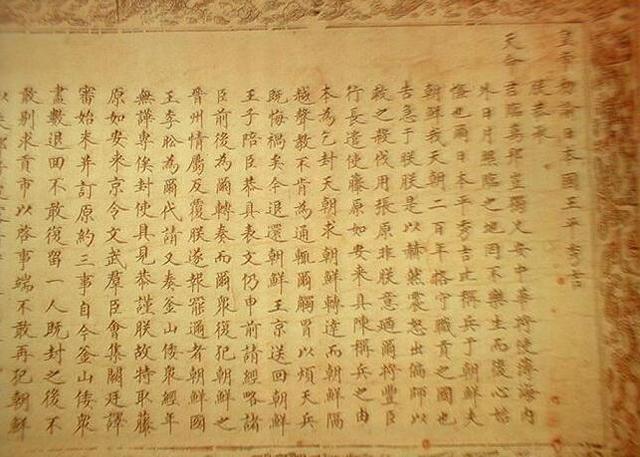 皇帝勑諭日本國王平秀吉
朕恭承
天命君臨萬邦豈獨乂安中華將使薄海內
外日月照臨之地罔不樂生而後心始
慊也爾日本平秀吉比稱兵于朝鮮夫
朝鮮我天朝二百年恪守職貢之國也
告急于朕朕是以赫然震怒出偏師以
救之殺伐用張原非朕意廼爾將豐臣
行長遣使藤原如安來具陳稱兵之由
本為乞封天朝求朝鮮轉達而朝鮮隔
越聲教不肯為通輒爾觸冒以煩天兵
既悔禍矣今退還朝鮮王京送回朝鮮
王子陪臣恭具表文仍申前請經略諸
臣前後為爾轉奏而爾眾復犯朝鮮之
晉州情屬反覆朕遂報罷邇者朝鮮國
王李昖為爾代請又奏釜山倭眾經年
無譁專俟封使具見恭謹朕故特取藤
原如安來京令文武羣臣會集闕廷譯
審始末并訂原約三事自今釜山倭眾
盡數退回不敢復留一人既封之後不
敢別求貢市以啓事端不敢再犯朝鮮
以